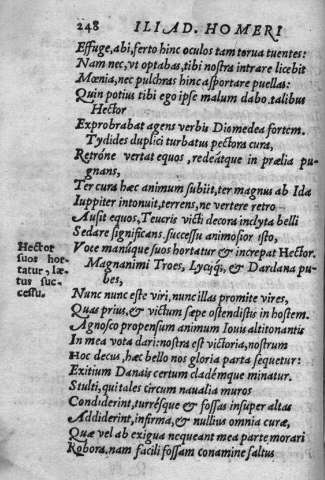 248 ILIAD. HOMERI
Effuge, abi, ferto hinc oculos tam torua tuentes:
Nam nec, vt optabas, tibi nostra intrare licebit
Mœnia, nec pulchras hinc asportare puellas:
Quin potius tibi ego ipse malum dabo. talibus
Hector
Exprobrabat agens verbis Diomedea fortem.
Tydides duplici turbatus pectora cura,
Retróne vertat equos, redeátque in prælia pugnans,
Ter cura hæc animum subiit, ter magnus ab Ida
Iuppiter intonuit, terrens, ne vertere retro
Ausit equos, Teucris victi decora inclyta belli
Sedare significans. successu animosior isto,
Hector
suos hortatur, lætus successu.
Voce manúque suos hortatur & increpat Hector.
Magnanimi Troes, Lycijq;, & Dardana pubes,
Nunc nunc este viri, nunc illas promite vires,
Quas prius, & victum sæpe ostendistis in hostem.
Agnosco propensum animum Iouis altitonantis
In mea vota dari: nostra est victoria, nostrum
Hoc decus, hæc bello nos gloria parta sequetur:
Exitium Danais certum cladémque minatur.
Stulti, qui tales circum naualia muros
Condiderint, turrésque & fossas insuper altas
Addiderint, infirma, & nullius omnia curæ,
Quæ vel ab exigua nequeant mea parte morari
Robora. nam facili fossam conamine saltus